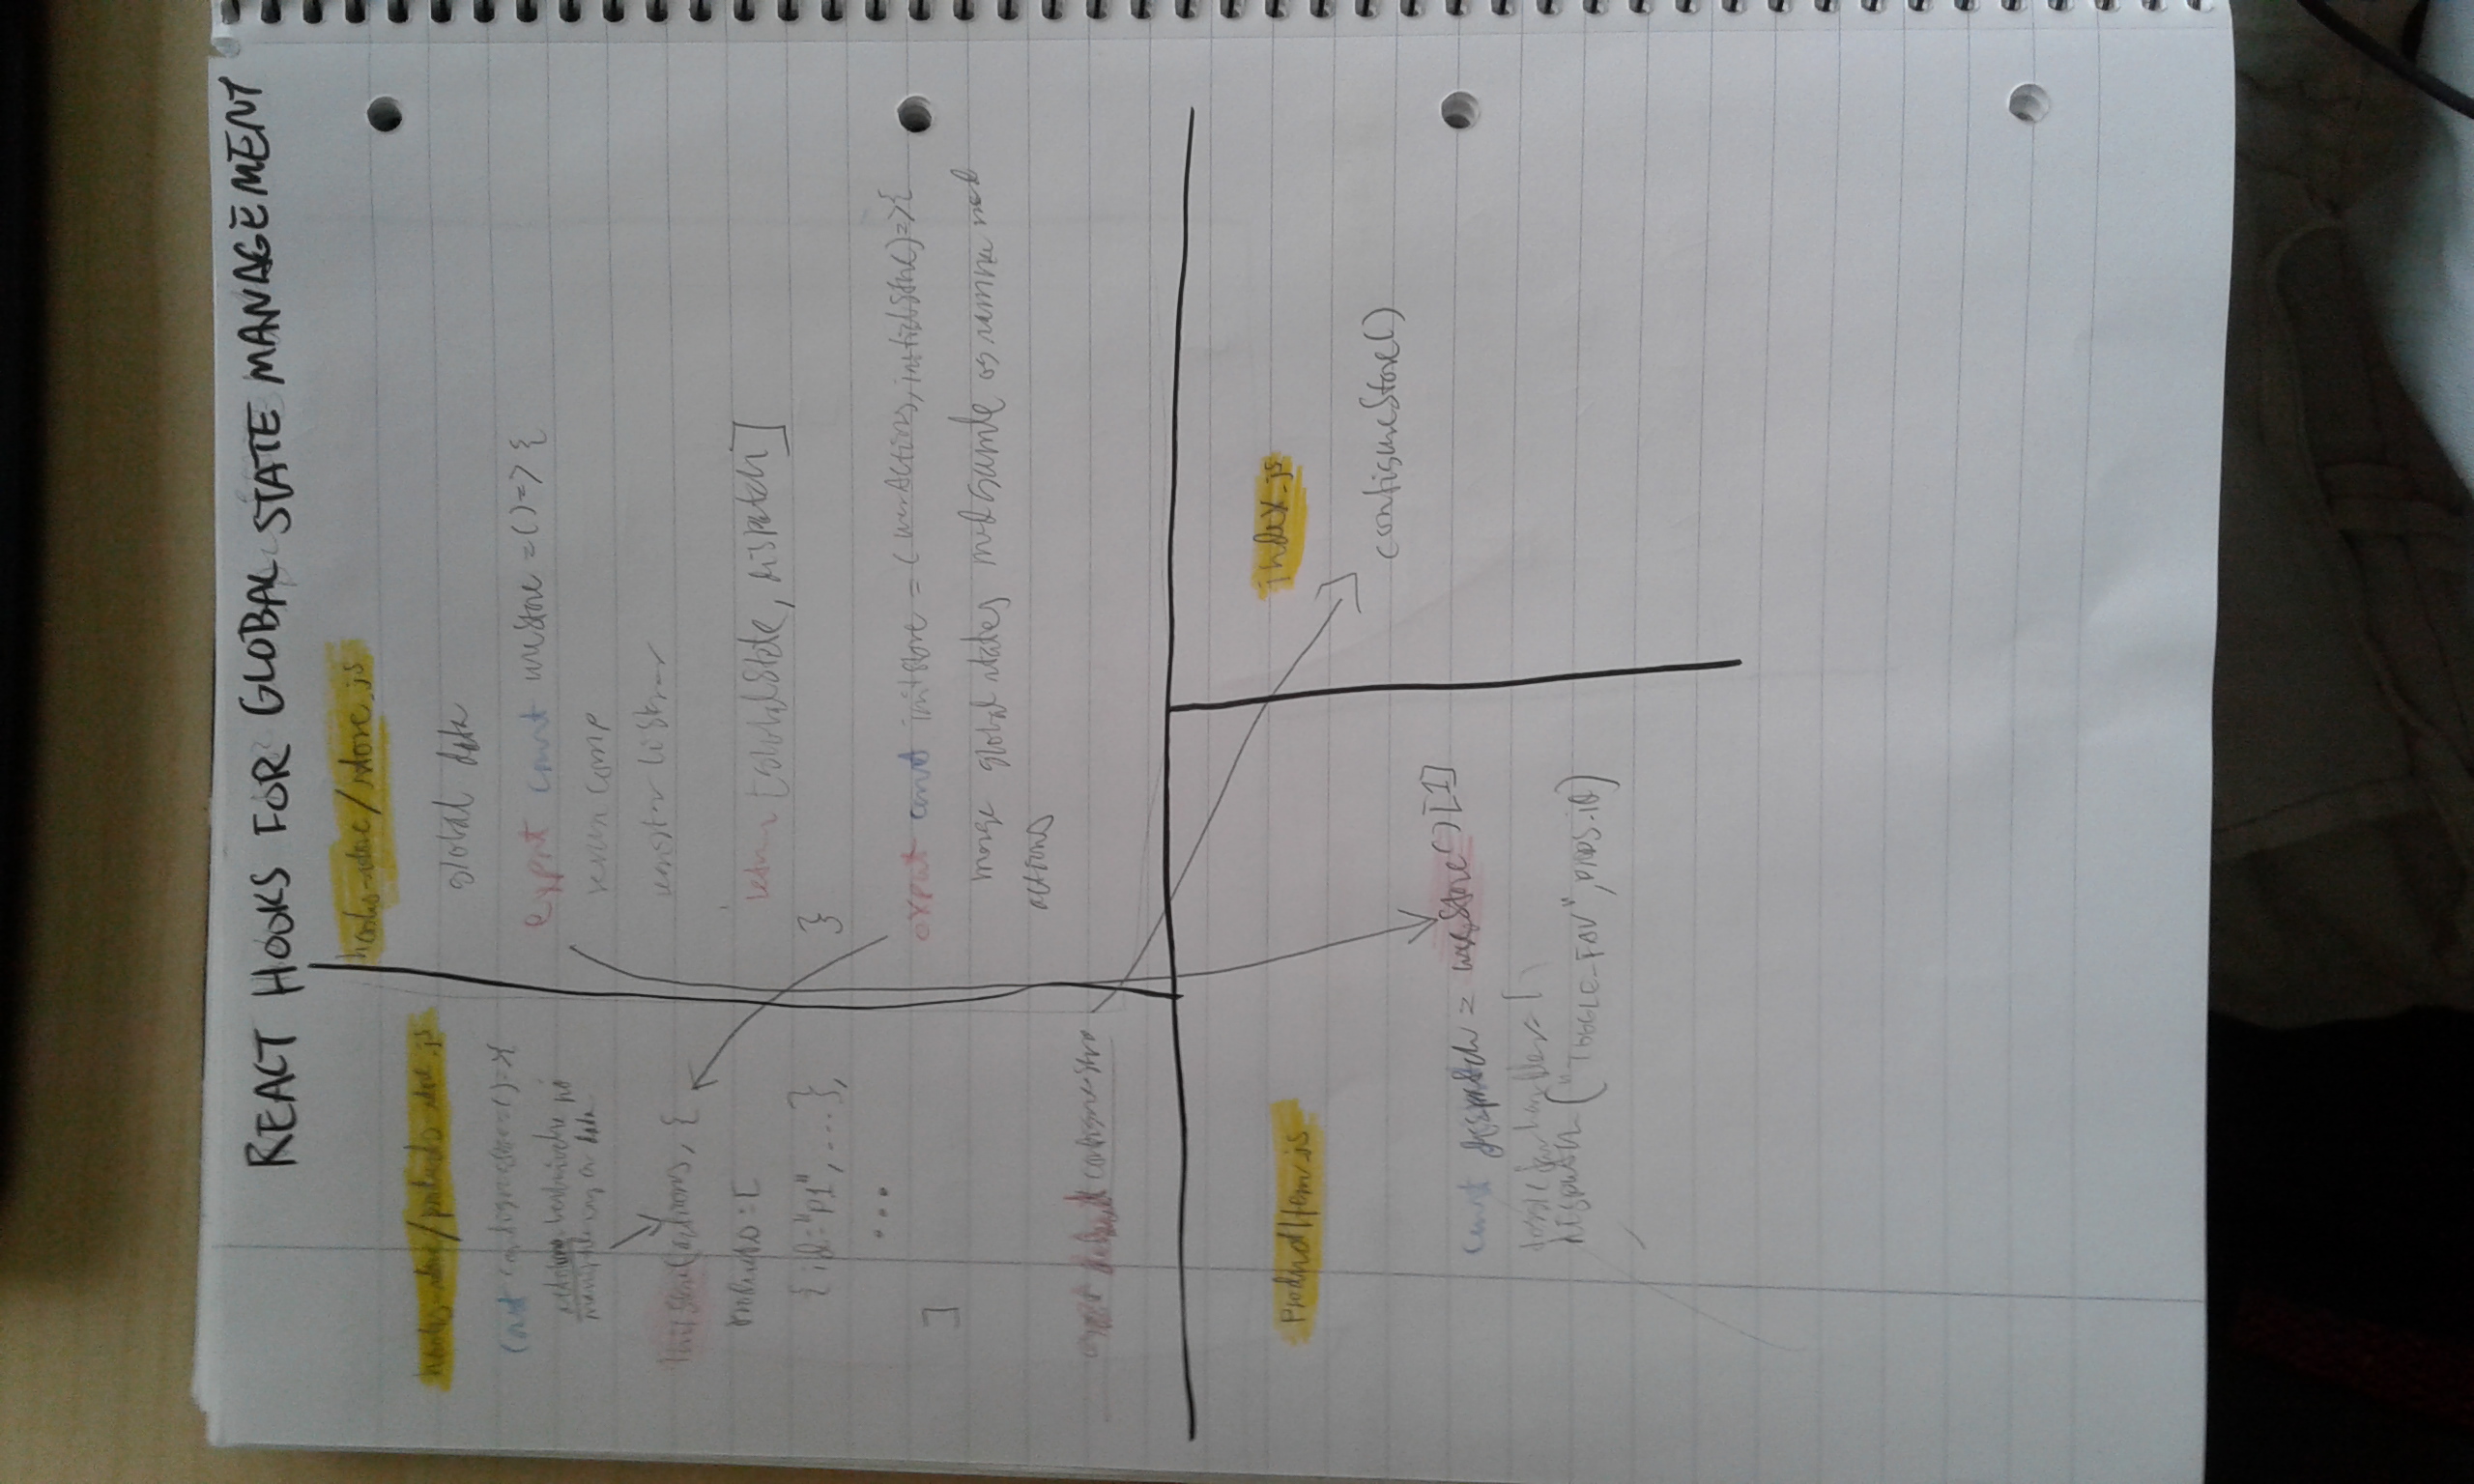 REACT HOOKS FOR GLOBAL STATE MANAGEMENT
hooks-store/products-store.js
const configureStore=()=>{
actions
on data
initStore(actions, {
products:[
{id="p1", ...},
...
]
export default configureStore
hooks-store/store.js
global data
export const useStore =()=> {
rerun comp
register listener
return [globalState, dispatch]
}
export const initStore = (userActions, initialState)=>{
merge global states med gamle og samme med
actions
ProductItem.js
const dispatch = useStore()[1]
dispatch("TOGGLE_FAV", props.id)
index.js
configureStore()